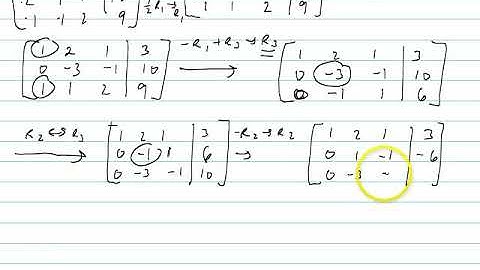 2 1 | 10 ½R₁→R₁
-1 -1 2 | 9 1 1 2 | 9
[1 2 1 | 3; 0 -3 -1 | 10; 1 1 2 | 9] -R₁+R₃→R₃ [1 2 1 | 3; 0 -3 -1 | 10; 0 -1 1 | 6]
R₂↔R₃ [1 2 1 | 3; 0 -1 1 | 6; 0 -3 -1 | 10] -R₂→R₂ [1 2 1 | 3; 0 1 -1 | -6; 0 -3 -